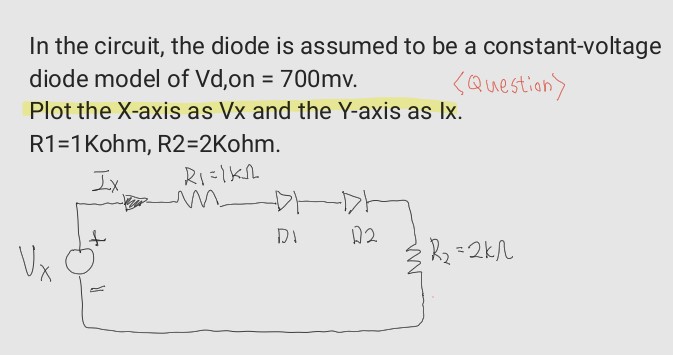 In the circuit, the diode is assumed to be a constant-voltage
diode model of Vd,on = 700mv.
<Question>
Plot the X-axis as Vx and the Y-axis as Ix.
R1=1Kohm, R2=2Kohm.
Ix
R1=1kΩ
D1
D2
+
Vx
R2=2kΩ
-